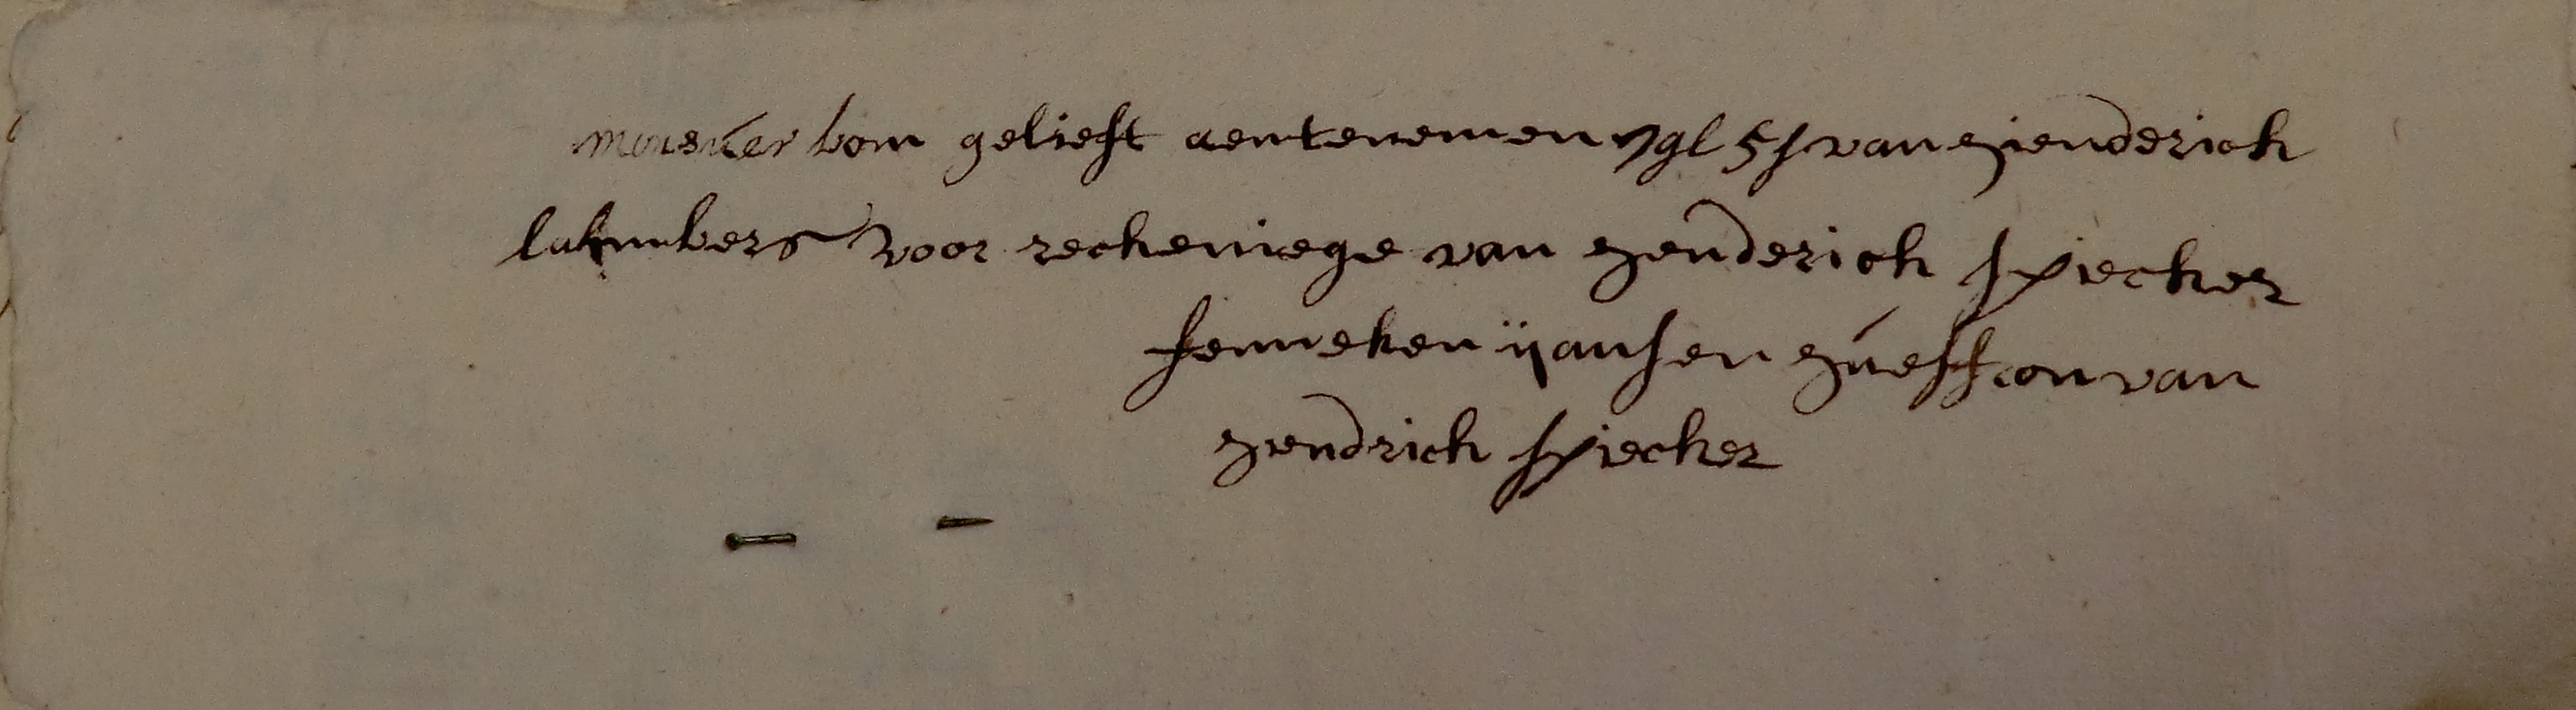 monsuer bom gelieft aentenemen 7 gl 5 s van hienderick
lammbers voor recheniege van henderick spiecker
fenneken ijansen húesfrou van
hendrick spiecker